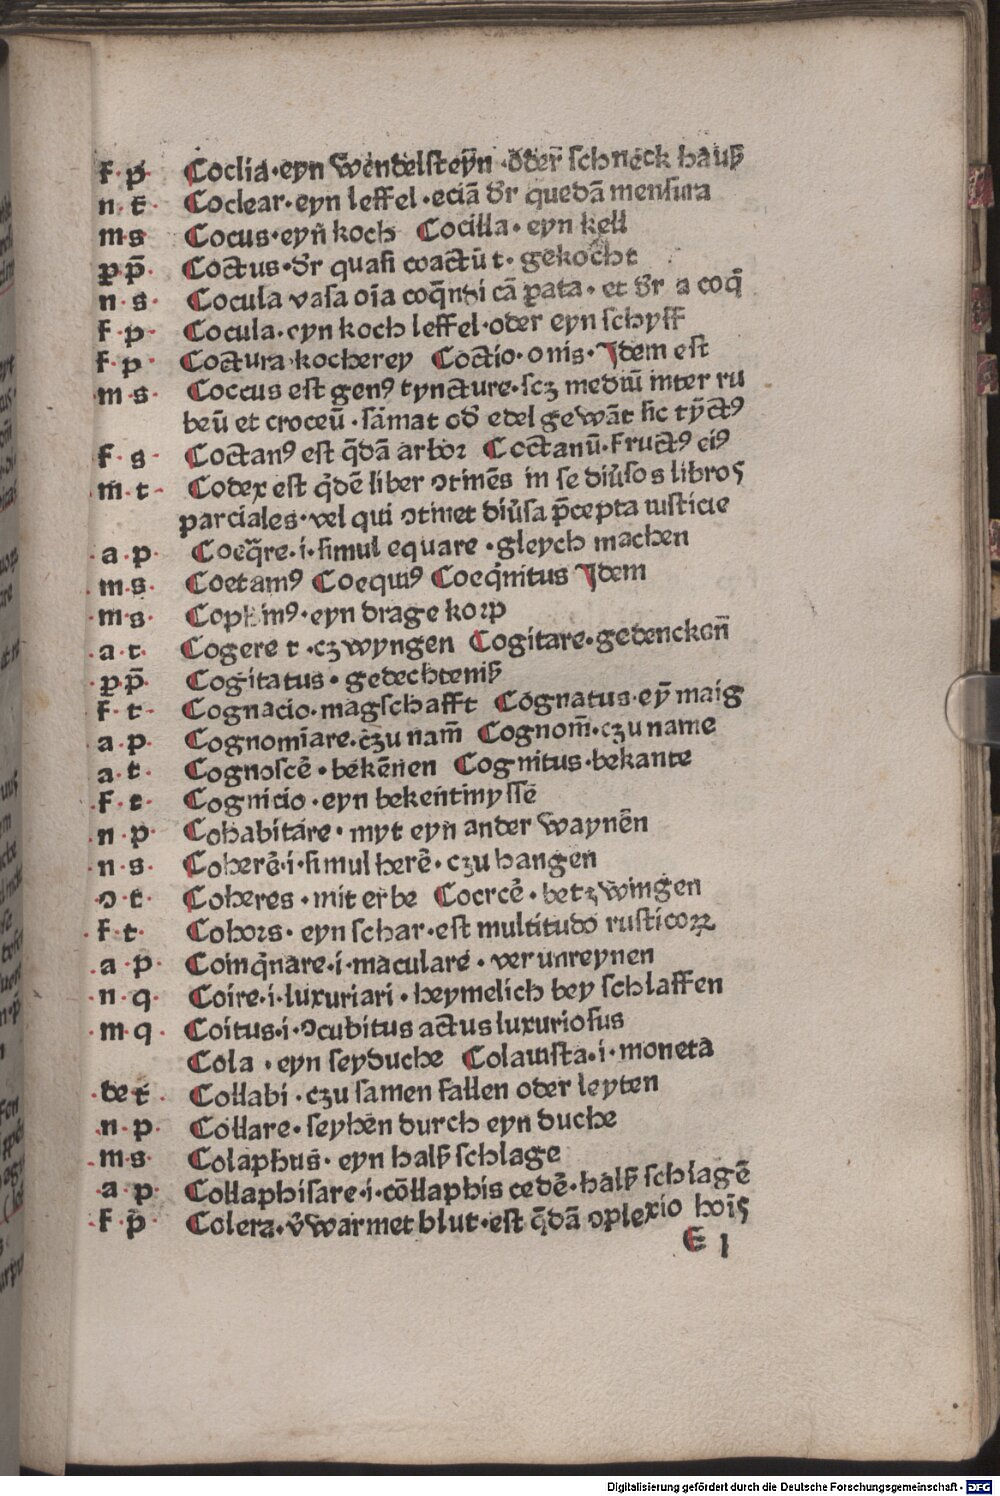 f·p· Coclia·eyn wendelsteyn̄·oder̄ schneck hauß
n·t̄· Coclear·eyn leffel·eciā dr̄ quedā mensura
m·s Cocus·eyn̄ koch Cocilla·eyn kell
pp̄· Coctus·dr̄ quasi coactū t·gekocht
n·s· Cocula vasa oīa coq̄ndi cā ꝑata·et dr̄ a coq̄
f·p· Cocula·eyn koch leffel·oder eyn schyff
f·p· Coctura·kocherey Coctio·onis·Idem est
m·s· Coccus est genꝰ tyncture·scꝫ mediū inter ru
beū et croceū·sāmat od̄ edel gewāt sic tȳctꝰ
f·s· Coctanꝰ est q̄dā arboꝛ Coctanū·fructꝰ eiꝰ
m̄·t· Codex est q̄dē liber ꝯtinēs in se diūsos libros
parciales·vel qui ꝯtinet diūsa p̄cepta iusticie
·a·p· Coeq̄re·i·simul equare·gleych machen
m·s· Coetamꝰ Coequiꝰ Coeq̄nitus Idem
·m·s· Cophinꝰ·eyn drage koꝛp
·a·t· Cogere t·czwyngen Cogitare·gedencken̄
·pp̄· Cogitatus·gedechteniß
f·t· Cognacio·magschafft Cognatus·eȳ maig
a·p· Cognomīare·czu nam̄ Cognom̄·czu name
a·t· Cognoscē·bekēnen Cognitus·bekante
·f·t· Cognicio·eyn bekentinyssē
·n·p· Cohabitare·myt eyn ander waynēn
·n·s· Coherē·i·simul herē·czu hangen
·ꝯ·t· Coheres·mit erbe Coercē·betzwingen
·f·t· Cohoꝛs·eyn schar·est multitudo rusticoꝝ
·a·p· Coinq̄nare·i·maculare·verunreynen
·n·q· Coire·i·luxuriari·heymelich bey schlaffen
·m·q· Coitus·i·ꝯcubitus actus luxuriosus
Cola·eyn seyduche Colauista·i·moneta
·de t̄· Collabi·czu samen fallen oder leyten
·n·p· Collare·seyhen durch eyn duche
·m·s· Colaphus·eyn halß schlage
·a·p· Collaphisare·i·cōllaphis cedē·halß schlagē
·f·p̄· Colera·v̄warmet blut·est q̄dā ꝯplexio hoīs
E 1
Digitalisierung gefördert durch die Deutsche Forschungsgemeinschaft - DFG